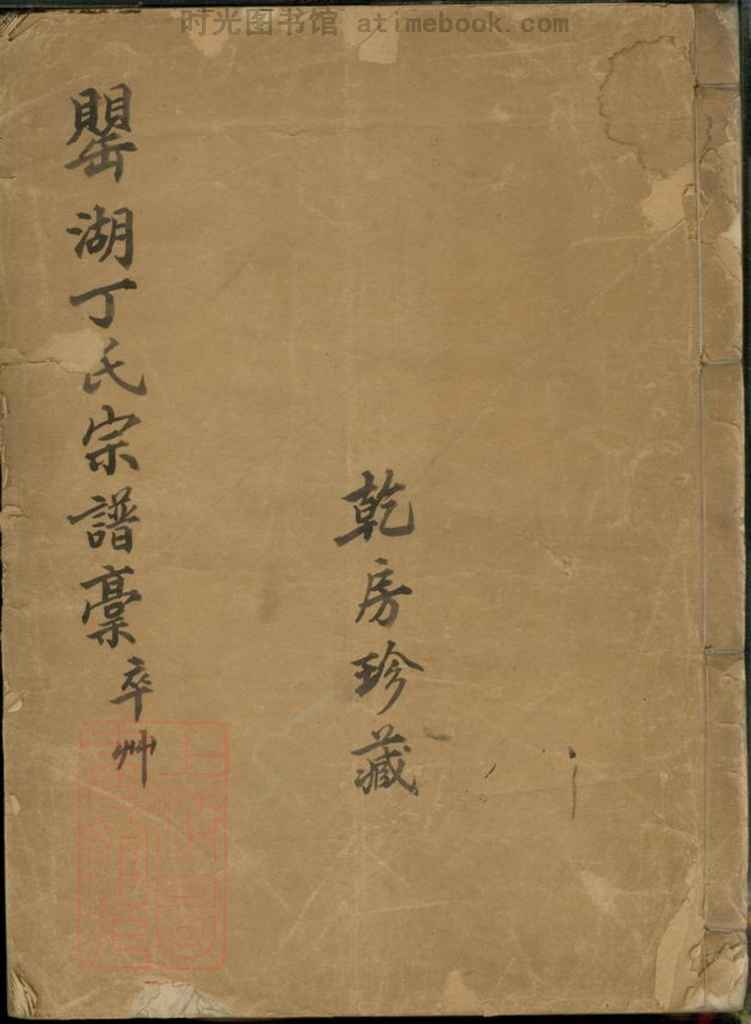 时光图书馆 atimebook.com
乾房珍藏
罌湖丁氏宗譜稾
卒艸